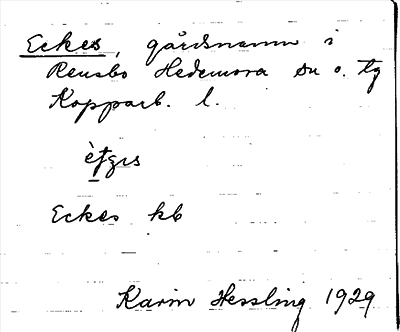 Eckes, gårdsnamn i
Rensbo Hedemora sn o. tg
Kopparb. l.
Eckes kb
Karin Hessling 1929